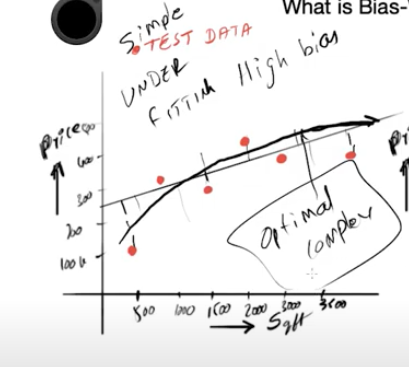 What is Bias-
Simple
TEST DATA
UNDER
FITTING High bias
price
400
300
200
100k
optimal
complex
500 1000 1500 2000 3000 3500
Sqft